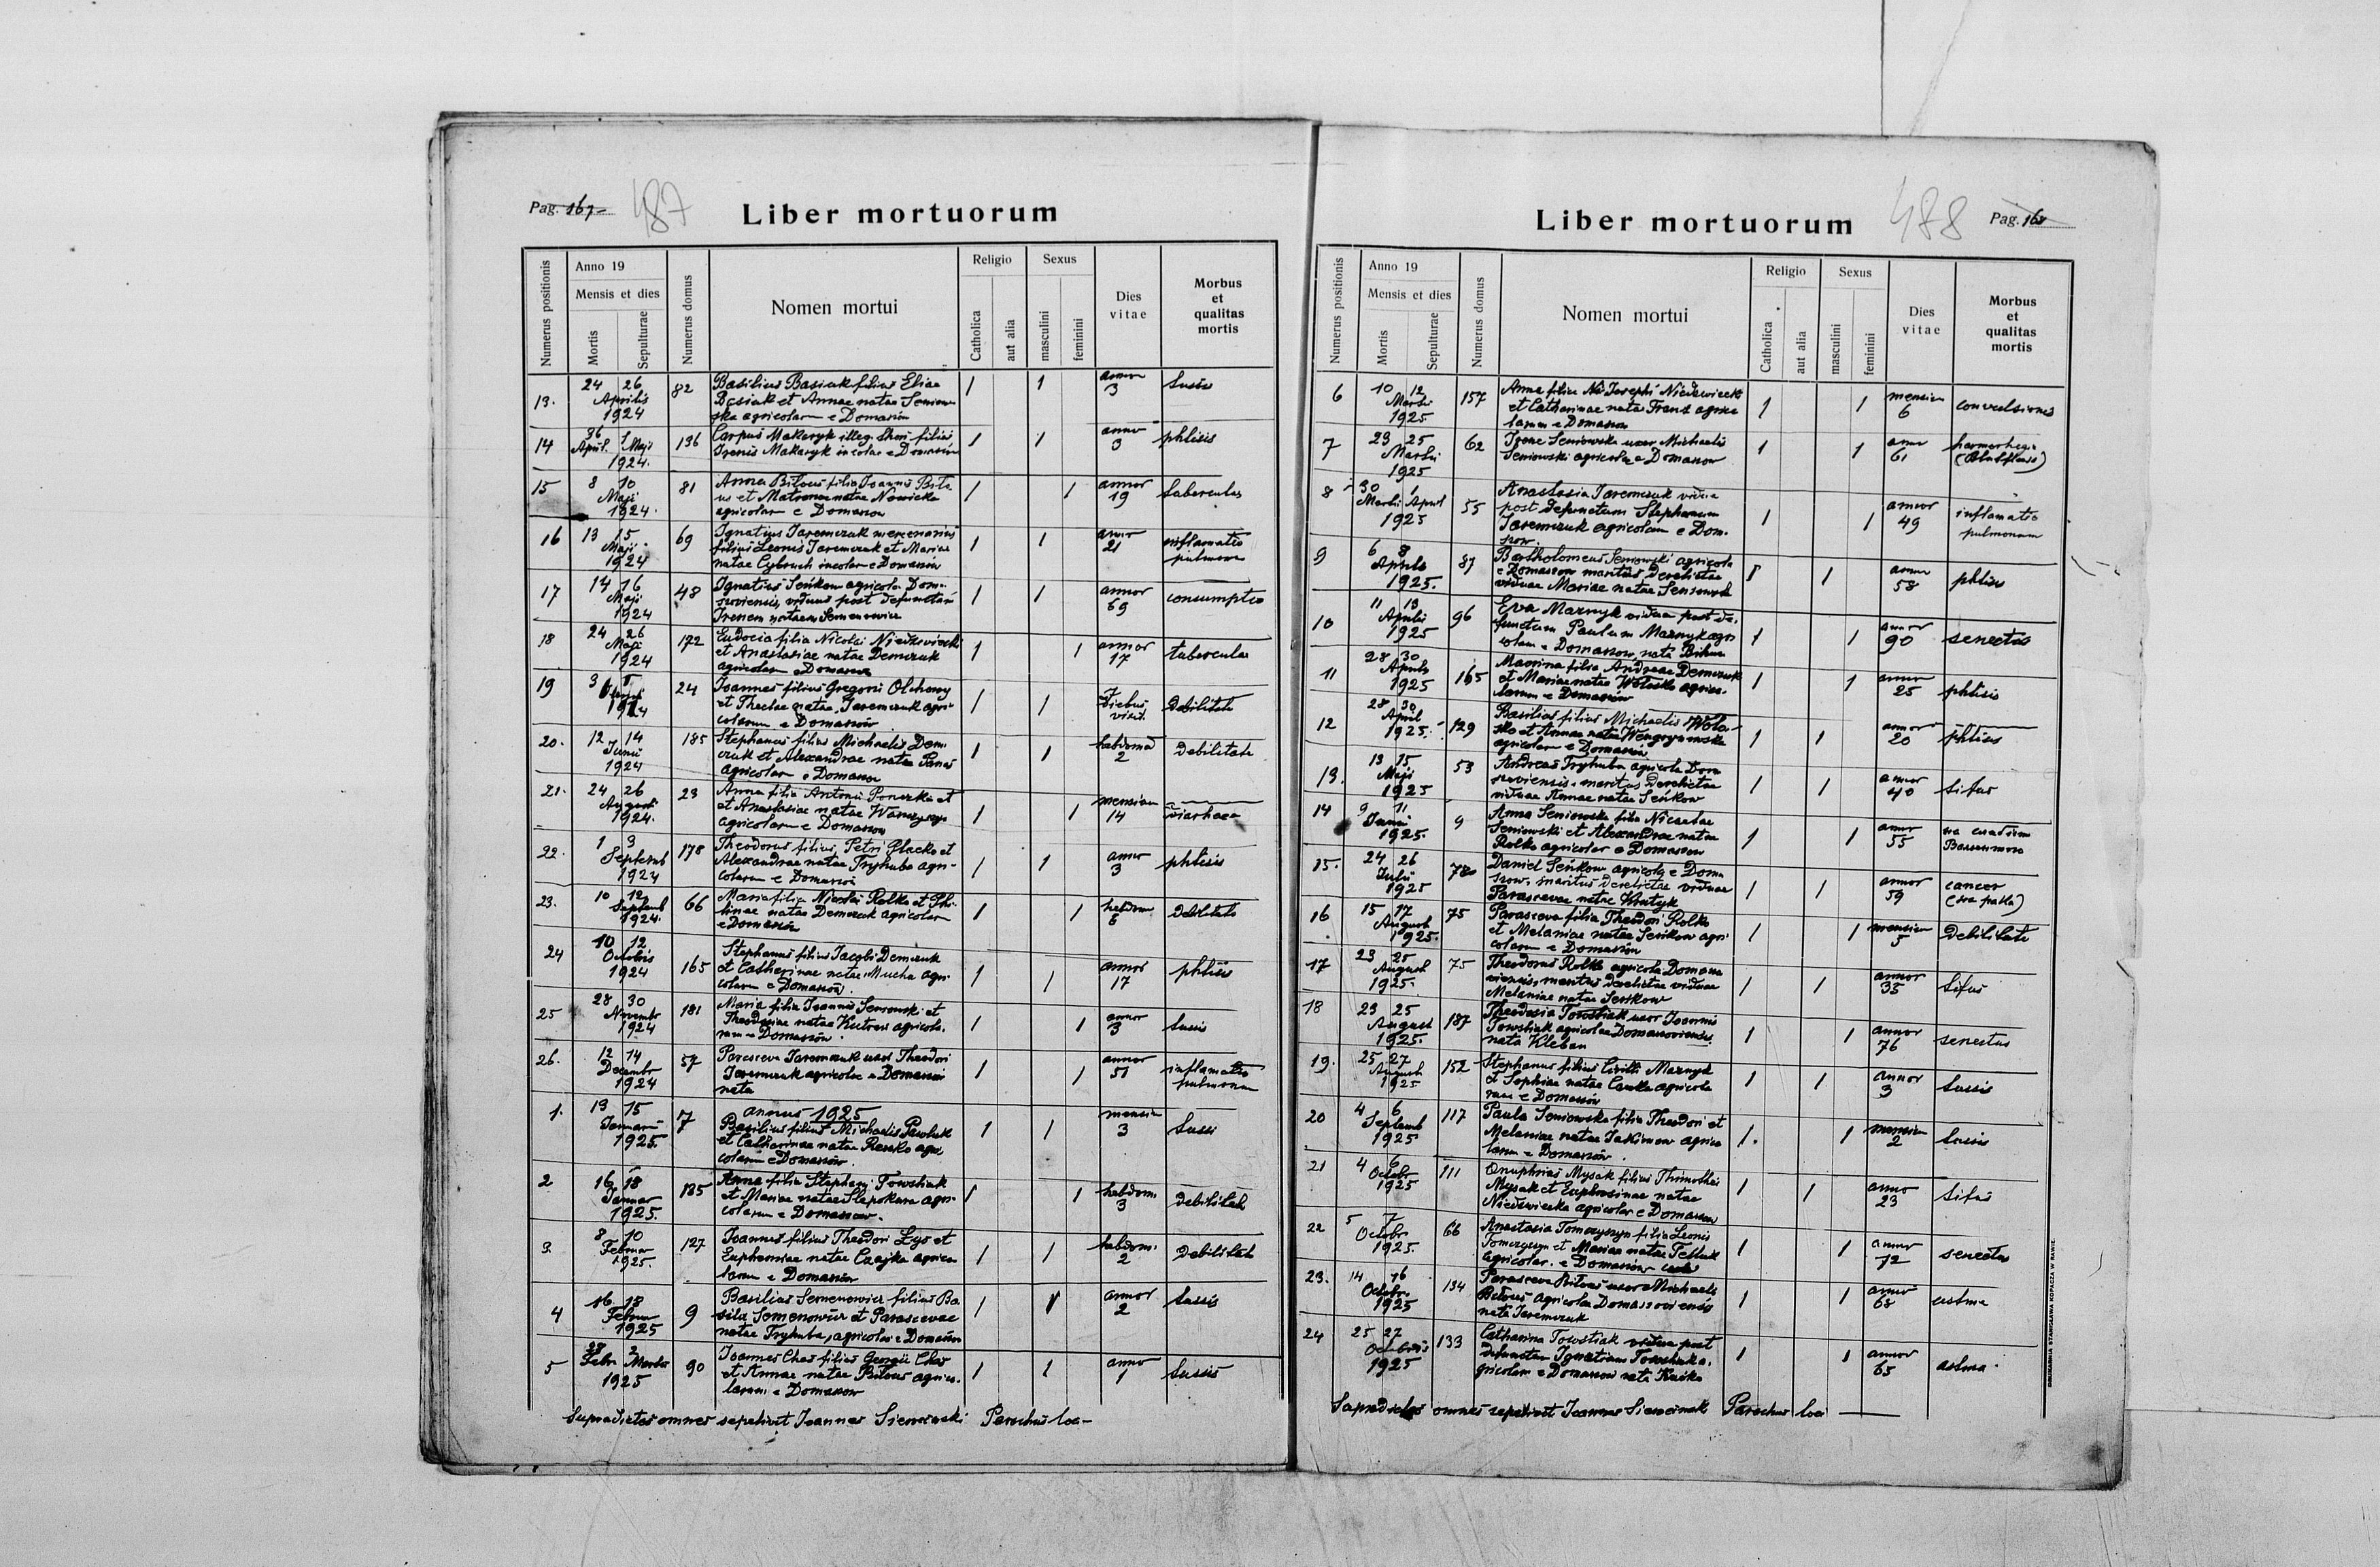 Pag. 167
487
Liber mortuorum
Numerus positionis
Anno 19
Mensis et dies
Mortis
Sepulturae
Numerus domus
Nomen mortui
Religio
Catholica
aut alia
Sexus
masculini
feminini
Dies vitae
Morbus et qualitas mortis
13. 24 26 82 Basilius Basiuk filius Eliae 1 1 annor 3 tussis
Aprilis Basiuk et Annae natae Seniow
1924 ska agricolarum e Domaszów
14 1 Maji 136 Carpus Makaryk illeg. thori filius 1 1 3 phtisis
April. Irenis Makaryk incolae e Domaszów
1924.
15 8 10 81 Anna Bilous filia Joannis Bilo 1 1 annor 19
Maji us et Matronae natae Nowicka
1924. agricolar e Domaszow
16 13 15 69 Ignatius Jaremczuk mercenarius 1 1 annor 21 inflamatio
Maji filius Leonis Jaremczuk et Mariae pulmonum
1924 natae Cybruch incolar e Domaszów
17 14 16 48 Ignatius Seńkow agricola Doma- 1 1 annor 69 consumptio
Maji szoviensis, viduus post defunctam
1924 Irenem natam Semenowicz
18 24 26 172 Eudocia filia Nicolai Niedzwiecki 1 1 annor 17
Maji et Anastasiae natae Demczuk
1924 agricolar e Domaszow
19 3 24 Joannes filius Gregorii Olchowy 1 1 7 diebus debilitate
et Theclae natae Jaremczuk agri-
1924 colarum e Domaszów
20. 12 14 185 Stephanus filius Michaelis Dem- 1 1 hebdomad 2 debilitate
Junii czuk et Alexandrae natae Panas
1924 agricolar e Domaszow
21. 24 26 23 Anna filia Antonii Ponczka et 1 1 mensium 14 diarhaea
Augusti et Anastasiae natae
1924. agricolarum e Domaszow
22. 1 3 178 Theodorus filius Petri Glacko et 1 1 annor 3 phtisis
Septemb Alexandrae natae Tryhuba agri-
1924 colarum e Domaszów
23. 10 12 66 Maria filia Nicolai Rolka et Pau- 1 1 hebdom debilitate
Septemb linae natae Demczuk agricolar
1924. e Domaszów
24 10 12 165 Stephanus filius Jacobi Demczuk 1 1 annor 17 phtisis
Octobris et Catherinae natae Mucha agri-
1924 colarum e Domaszów.
25 28 30 181 Maria filia Joannis Seniowski et 1 1 annor 3 tussis
Novembr Theodosiae natae agricola-
1924 rum e Domaszów.
26. 12 14 57 Parasceva Jaremczuk uxor Theodori 1 1 annor 51 inflamatio
Decembr Jaremczuk agricolae e Domaszów pulmonum
1924 nata
annus 1925
1. 13 15 7 Basilius filius Michaelis Pawluk 1 1 mensium 3 tussi
Januarii et Catharinae natae Reszko agri
1925. colarum e Domaszów.
2 16 18 135 Anna filia Stephani Towstiak 1 1 hebdom. 3 debilitate
Januar et Mariae natae Slepokura agri-
1925. colarum e Domaszow.
3. 8 10 127 Joannes filius Theodori Zys et 1 1 hebdom. 2 debilitate
Februar Euphemiae natae Czajka agrico
1925. larum e Domaszów
4 16 18 9 Basilius Semenowicz filius Ba 1 1 annor 2 tussis
Februar silii Semenowicz et Parascevae
1925 natae Tryhuba, agricolar e Domaszów
5 28 2 90 Joannes Chas filius Georgii Chas 1 1 anno 1 tussis
Febr. Martii et Annae natae Bilous agrico-
1925 larum e Domaszow
Supradictos omnes sepelivit Joannes Parochus loci
488
Pag. 168
Liber mortuorum
Numerus positionis
Anno 19
Mensis et dies
Mortis
Sepulturae
Numerus domus
Nomen mortui
Religio
Catholica
aut alia
Sexus
masculini
feminini
Dies vitae
Morbus et qualitas mortis
6 10 12 157 Anna filia Josephi Niedzwiecki 1 1 mensium 6 convulsiones
Martii et Catharinae natae Franz agrico
1925 larum e Domaszow
7 23 25 62 Irene Seniowska uxor Michaelis 1 1 annor 61
Martii Seniowski agricolae e Domaszow
1925
8 30 1 55 Anastasia Jaremczuk vidua 1 1 annor 49 inflamatio
Martii April post defunctum Stephanum pulmonum
1925 Jaremczuk agricolam e Doma-
szow.
9 6 8 87 Bartholomeus Seniowski agricola 1 1 annor 58 phtisis
Aprilis e Domaszow maritus derelictae
1925. viduae Mariae natae Seniowska
10 11 13 96 Eva Maznyk vidua post de- 1 1 annor 90 senectus
Aprilis functum Paulum Maznyk agri
1925 colam e Domaszow, nata
11 28 30 165 Marina filia Andreae Demczuk 1 1 annor 25 phtisis
Aprilis et Mariae natae Woloszko agrico-
1925 larum e Domaszów
12 28 30 129 Basilius filius Michaelis Wolo- 1 1 annor 20 phtisis
April szko et Annae natae Wengrynowska
1925. agricolar e Domaszow
13. 13 15 53 Andreas Tryhuba agricola Doma 1 1 annor 40 tifus
Maji szoviensis, maritus derelictae
1925 viduae Annae natae Seńkow
14 9 11 9 Anna Seniowska filia Nicolai 1 1 annor 55
Junii Seniowski et Alexandrae natae
1925. Rolka agricolar e Domaszow
15. 24 26 78 Daniel Seńkow agricola e Doma 1 1 annor 59 cancer
Julii szow, maritus derelictae viduae
1925 Parascevae natae
16 15 17 75 Parasceva filia Theodori Rolka 1 1 mensium 5 debilitate
August et Melaniae natae Seńkow agri-
1925. colarum e Domaszów
17 23 25 75 Theodorus Rolka agricola Domasz 1 1 annor 35 tifus
August oviensis, maritus derelictae viduae
1925. Melaniae natae Senkow
18 23 25 187 Theodosia Towstiak uxor Joannis 1 1 annor 76 senectus
August Towstiak agricolae Domaszoviensis
1925. nata Kleban
19. 25 27 152 Stephanus filius Cirilli Maznyk 1 1 annor 3 tussis
August et Sophiae natae agricola
1925 rum e Domaszów
20 4 6 117 Paula Seniowska filia Theodori et 1. 1 mensium 2 tussis
Septemb Melaniae natae Jakimow agrico
1925 larum e Domaszów.
21 4 6 111 Onuphrius Mysak filius Thimothei 1 1 anno 23 tifus
Octobr Mysak et Euphrosinae natae
1925 Niedzwiecka agricolar e Domaszow
22 5 7 66 Anastasia Tomczyszyn filia Leonis 1 1 annor 72 senectus
Octobr Tomczyszyn et Mariae natae
1925. agricolar. e Domaszów
23. 14 16 134 Parasceva Bilous uxor Michaelis 1 1 annor 68 astma
Octobr. Bilous agricolae Domaszoviensis
1925 nata Jaremczuk
24 25 27 133 Catharina Towstiak vidua post 1 1 annor 65 astma.
Octobris defunctum Ignatium Towstiak a-
1925 gricolam e Domaszow nata
Supradictos omnes sepelivit Joannes Parochus loci
DRUKARNIA STANISŁAWA KOPACZA W RAWIE.